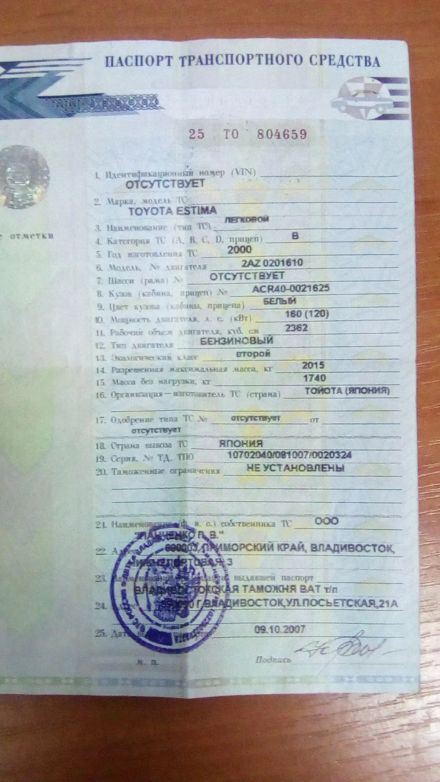 ПАСПОРТ ТРАНСПОРТНОГО СРЕДСТВА
25 ТО 804659
1. Идентификационный номер (VIN)
ОТСУТСТВУЕТ
2. Марка, модель ТС
TOYOTA ESTIMA
3. Наименование (тип ТС) ЛЕГКОВОЙ
4. Категория ТС (A, B, C, D, прицеп) B
5. Год изготовления ТС 2000
6. Модель, № двигателя 2AZ 0201610
7. Шасси (рама) № ОТСУТСТВУЕТ
8. Кузов (кабина, прицеп) № ACR40-0021625
9. Цвет кузова (кабины, прицепа) БЕЛЫЙ
10. Мощность двигателя, л. с. (кВт) 160 (120)
11. Рабочий объем двигателя, куб. см 2362
12. Тип двигателя БЕНЗИНОВЫЙ
13. Экологический класс второй
14. Разрешенная максимальная масса, кг 2015
15. Масса без нагрузки, кг 1740
16. Организация—изготовитель ТС (страна) ТОЙОТА (ЯПОНИЯ)
17. Одобрение типа ТС № отсутствует от
отсутствует
18. Страна вывоза ТС ЯПОНИЯ
19. Серия, № ТД, ТПО 10702040/081007/0020324
20. Таможенные ограничения НЕ УСТАНОВЛЕНЫ
е отметки
21. Наименование (ф. и. о.) собственника ТС ООО
В."
22. ПРИМОРСКИЙ КРАЙ, ВЛАДИВОСТОК,
3
23. Наименование выдавшей паспорт
ВЛАДИВОСТОКСКАЯ ТАМОЖНЯ ВАТ т/п
24. Г.ВЛАДИВОСТОК,УЛ.ПОСЬЕТСКАЯ,21А
25. Дата 09.10.2007
М. П. Подпись